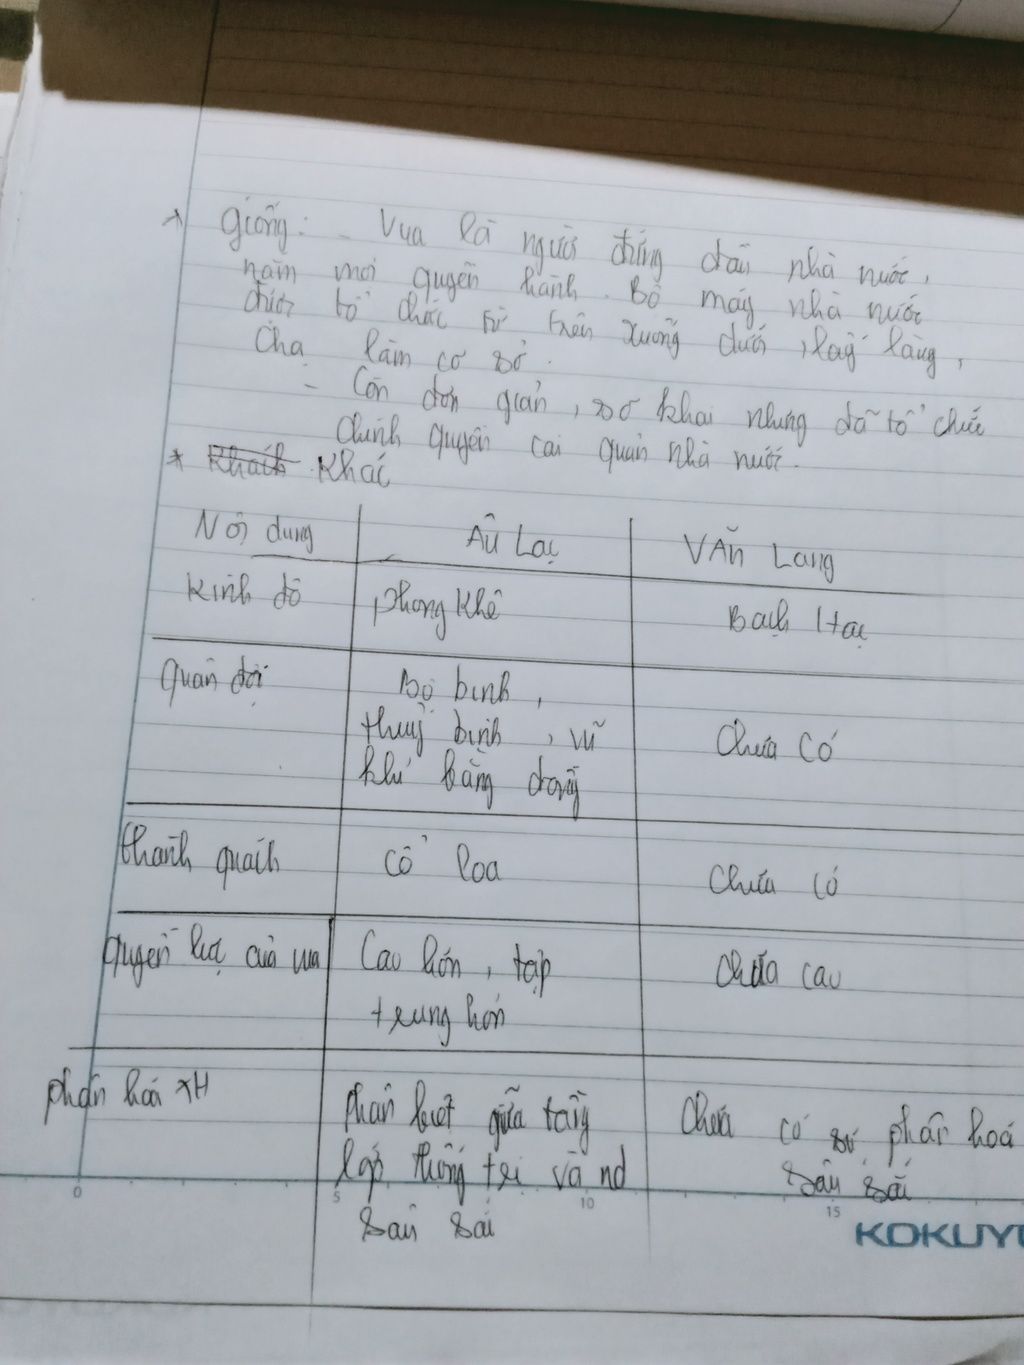 * Giống: - Vua là người đứng đầu nhà nước,
nắm mọi quyền hành. Bộ máy nhà nước
được tổ chức từ trên xuống dưới, lấy làng,
Chạ làm cơ sở.
- Còn đơn giản, sơ khai nhưng đã tổ chức
chính quyền cai quản nhà nước.
* Khác
Nội dung | Âu Lạc | Văn Lang
Kinh đô | phong khê | Bạch Hạc
quân đội | Bộ binh, thuỷ binh, vũ khí bằng đồng | chưa có
thành quách | cổ loa | chưa có
quyền lực của vua | Cao hơn, tập trung hơn | chưa cao
phân hoá XH | phân biệt giữa tầng lớp thống trị và nd sâu sắc | chưa có sự phân hoá sâu sắc
0 5 10 15
KOKUY